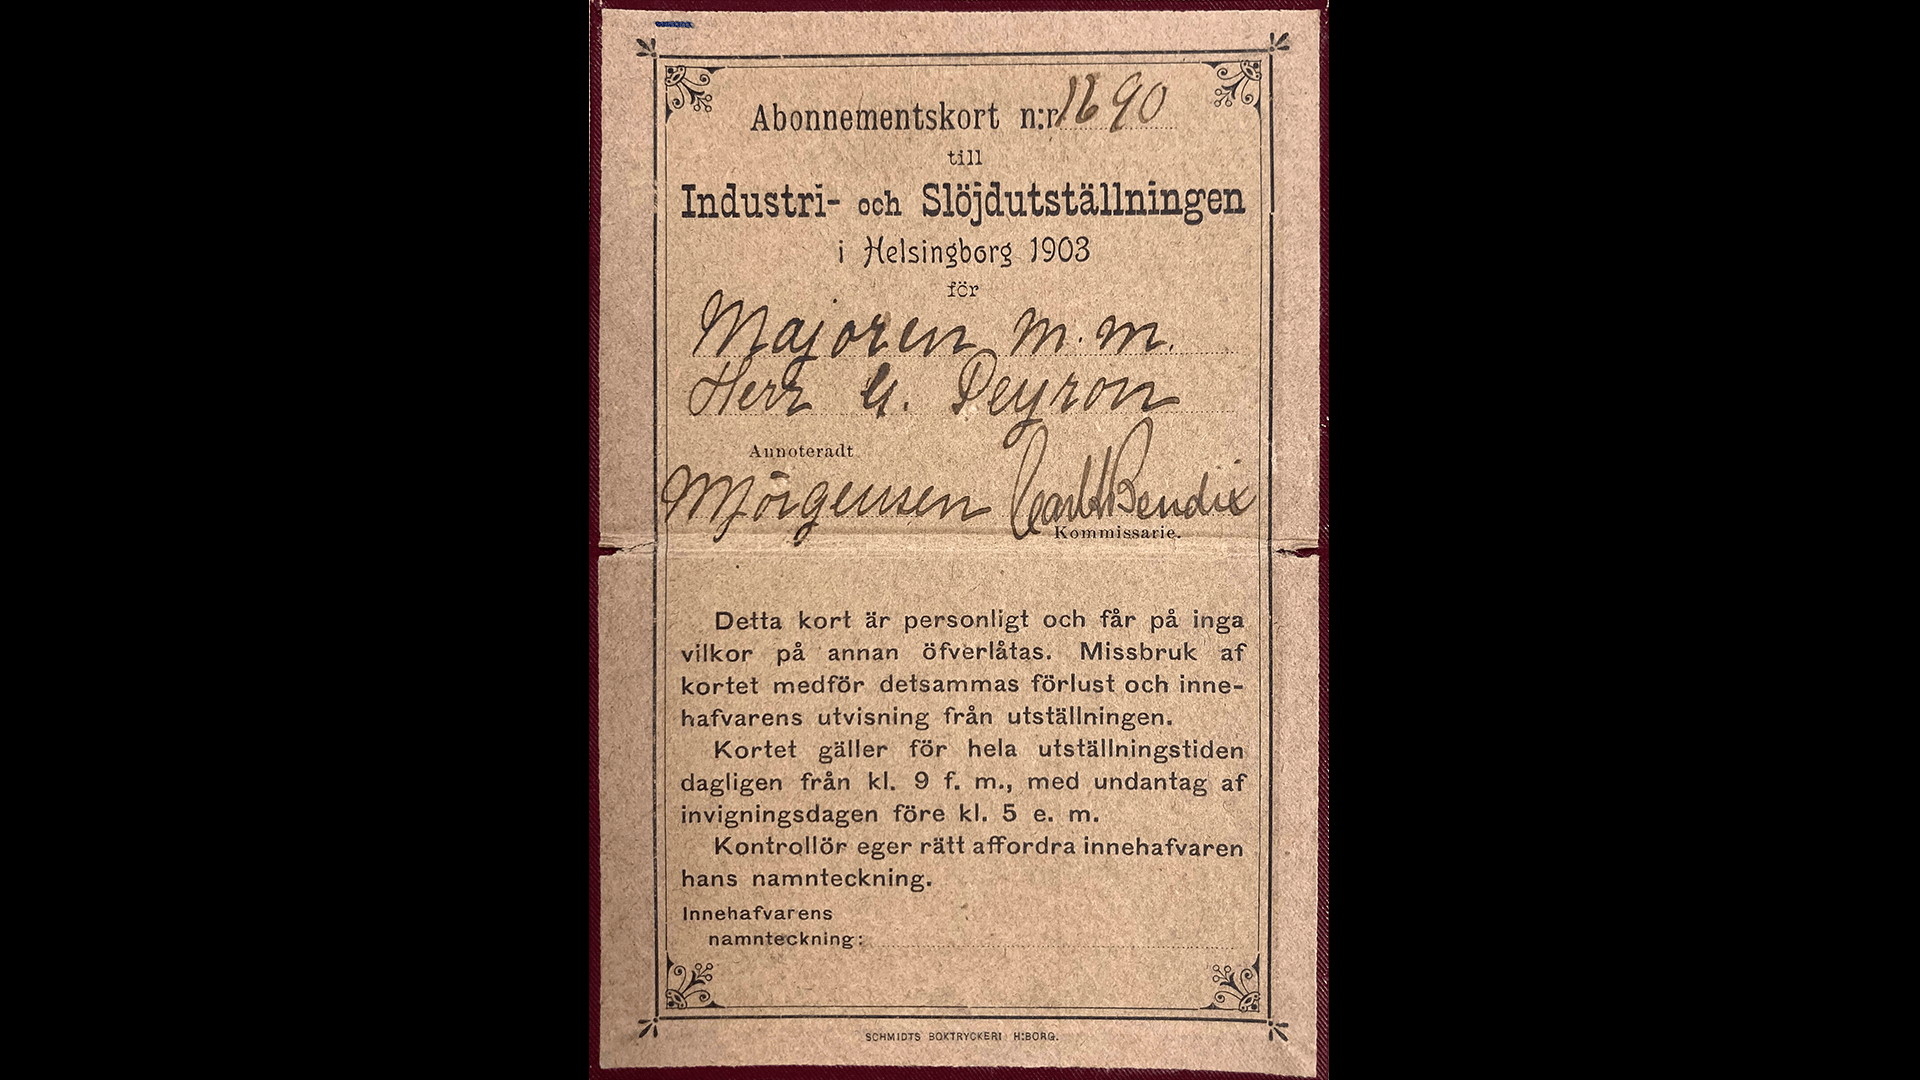 Abonnementskort n:r 1690
till
Industri- och Slöjdutställningen
i Helsingborg 1903
för
Majoren m.m.
Herr G. Peyron
Annoteradt
MJörgensen Carl Bendix
Kommissarie.
Detta kort är personligt och får på inga
vilkor på annan öfverlåtas. Missbruk af
kortet medför detsammas förlust och inne-
hafvarens utvisning från utställningen.
Kortet gäller för hela utställningstiden
dagligen från kl. 9 f. m., med undantag af
invigningsdagen före kl. 5 e. m.
Kontrollör eger rätt affordra innehafvaren
hans namnteckning.
Innehafvarens
namnteckning:
SCHMIDTS BOKTRYCKERI H:BORG.